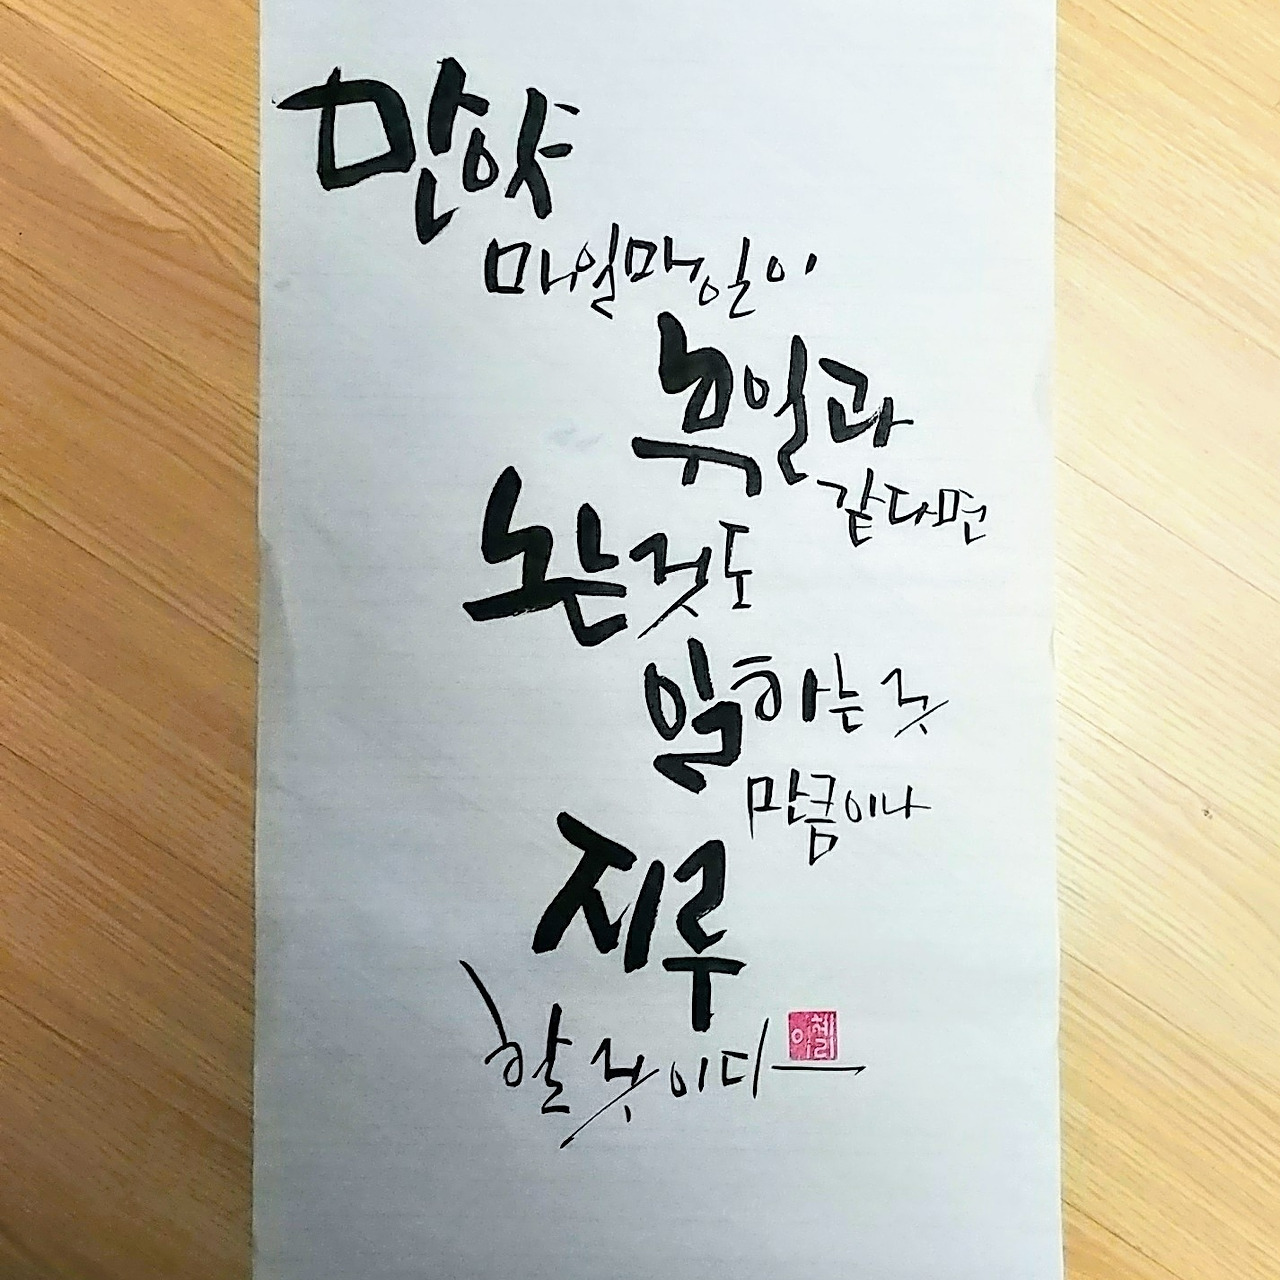 만약
매일매일이
휴일과
같다면
노는것도
일하는것
만큼이나
지루
할것이다
이혜리